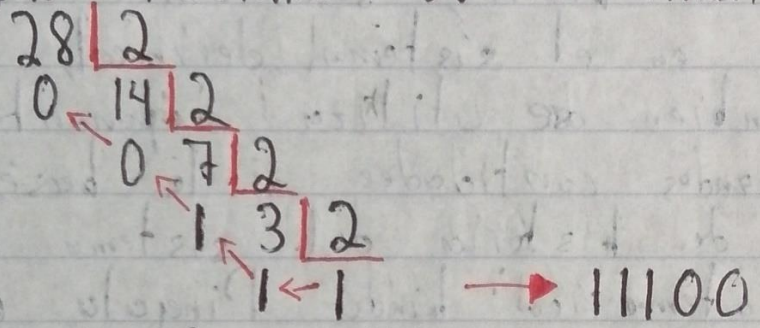 28 2
0 14 2
0 7 2
1 3 2
1 ← 1 → 11100